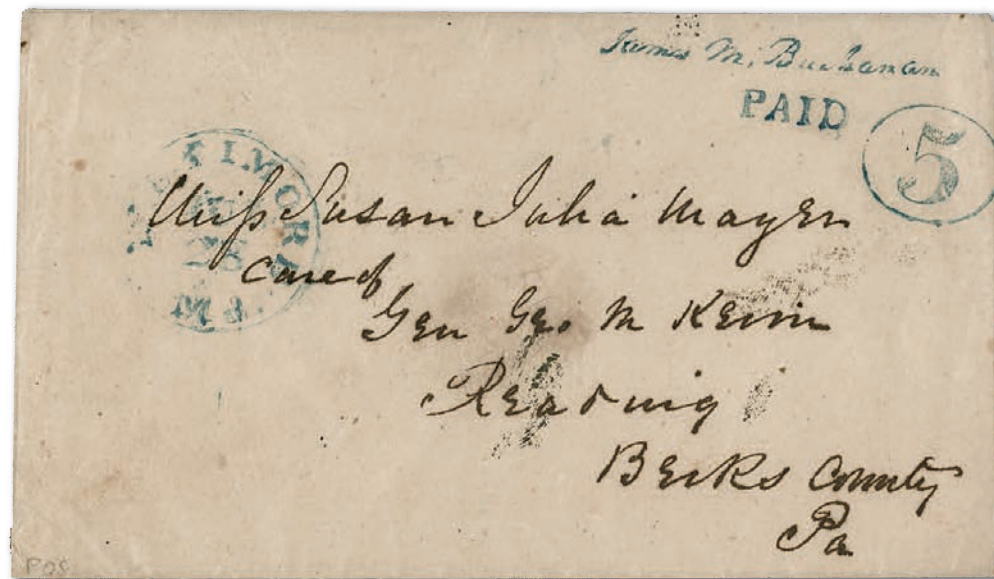 James M. Buchanan
PAID
5
Miss Susan Julia Mayer
Care of
Gen Geo. M Keim
Reading
Berks County
Pa